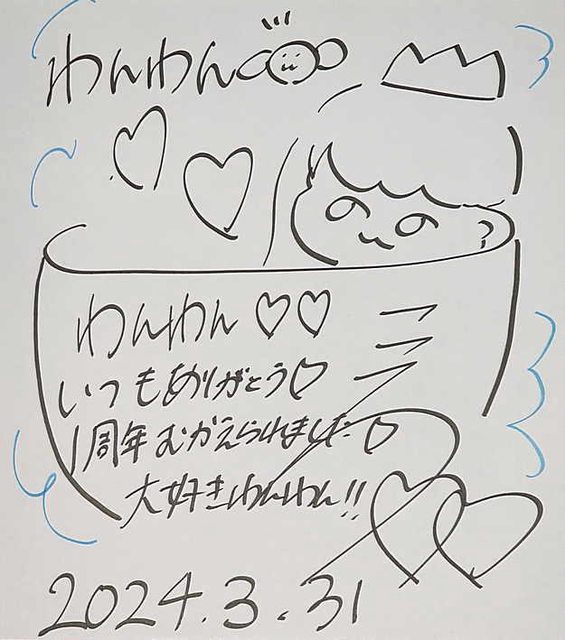 わんわん
わんわん♡♡
いつもありがとう♡
1周年むかえられました♡
大好きわんわん!!
2024.3.31